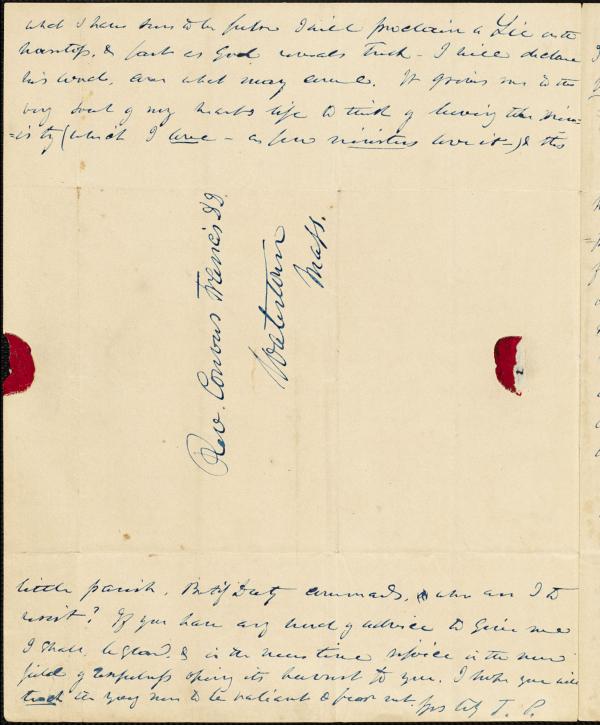 and I have seen to be false I will proclaim a Lie on the
housetop, & fast as God reveals truth - I will declare
his word, come what may come. It grieves me to the
very soul of my heart's life to think of leaving this min=
=istry (which I love - as few ministers love it -) & this
Rev. Convers Francis D D.
Watertown
Mass.
little parish. But if Duty commands, who am I to
resist? If you have any word of advice to give me
I shall be glad, & in the mean time rejoice in the new
field of usefulness opening its harvest to you. I hope you will
teach the young men to be valiant & fear not. Yrs T. P.